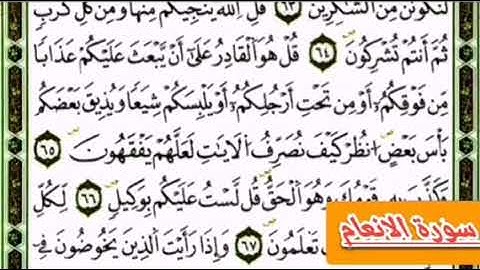 لَنَكُونَنَّ مِنَ الشَّٰكِرِينَ ٦٣ قُلِ اللَّهُ يُنَجِّيكُم مِّنْهَا وَمِن كُلِّ كَرْبٍ
ثُمَّ أَنتُمْ تُشْرِكُونَ ٦٤ قُلْ هُوَ الْقَادِرُ عَلَىٰٓ أَن يَّبْعَثَ عَلَيْكُمْ عَذَابًا
مِّن فَوْقِكُمُۥٓ أَوْ مِن تَحْتِ أَرْجُلِكُمُۥٓ أَوْ يَلْبِسَكُمْ شِيَعًا وَيُذِيقَ بَعْضَكُم
بَأْسَ بَعْضٍ انظُرْ كَيْفَ نُصَرِّفُ الْآيَٰتِ لَعَلَّهُمْ يَفْقَهُونَ ٦٥
وَكَذَّبَ بِهِۦ قَوْمُكَ وَهُوَ الْحَقُّ قُل لَّسْتُ عَلَيْكُم بِوَكِيلٍ ٦٦ لِكُلِّ
تَعْلَمُونَ ٦٧ وَإِذَا رَأَيْتَ الَّذِينَ يَخُوضُونَ فِي
سورة الانعام